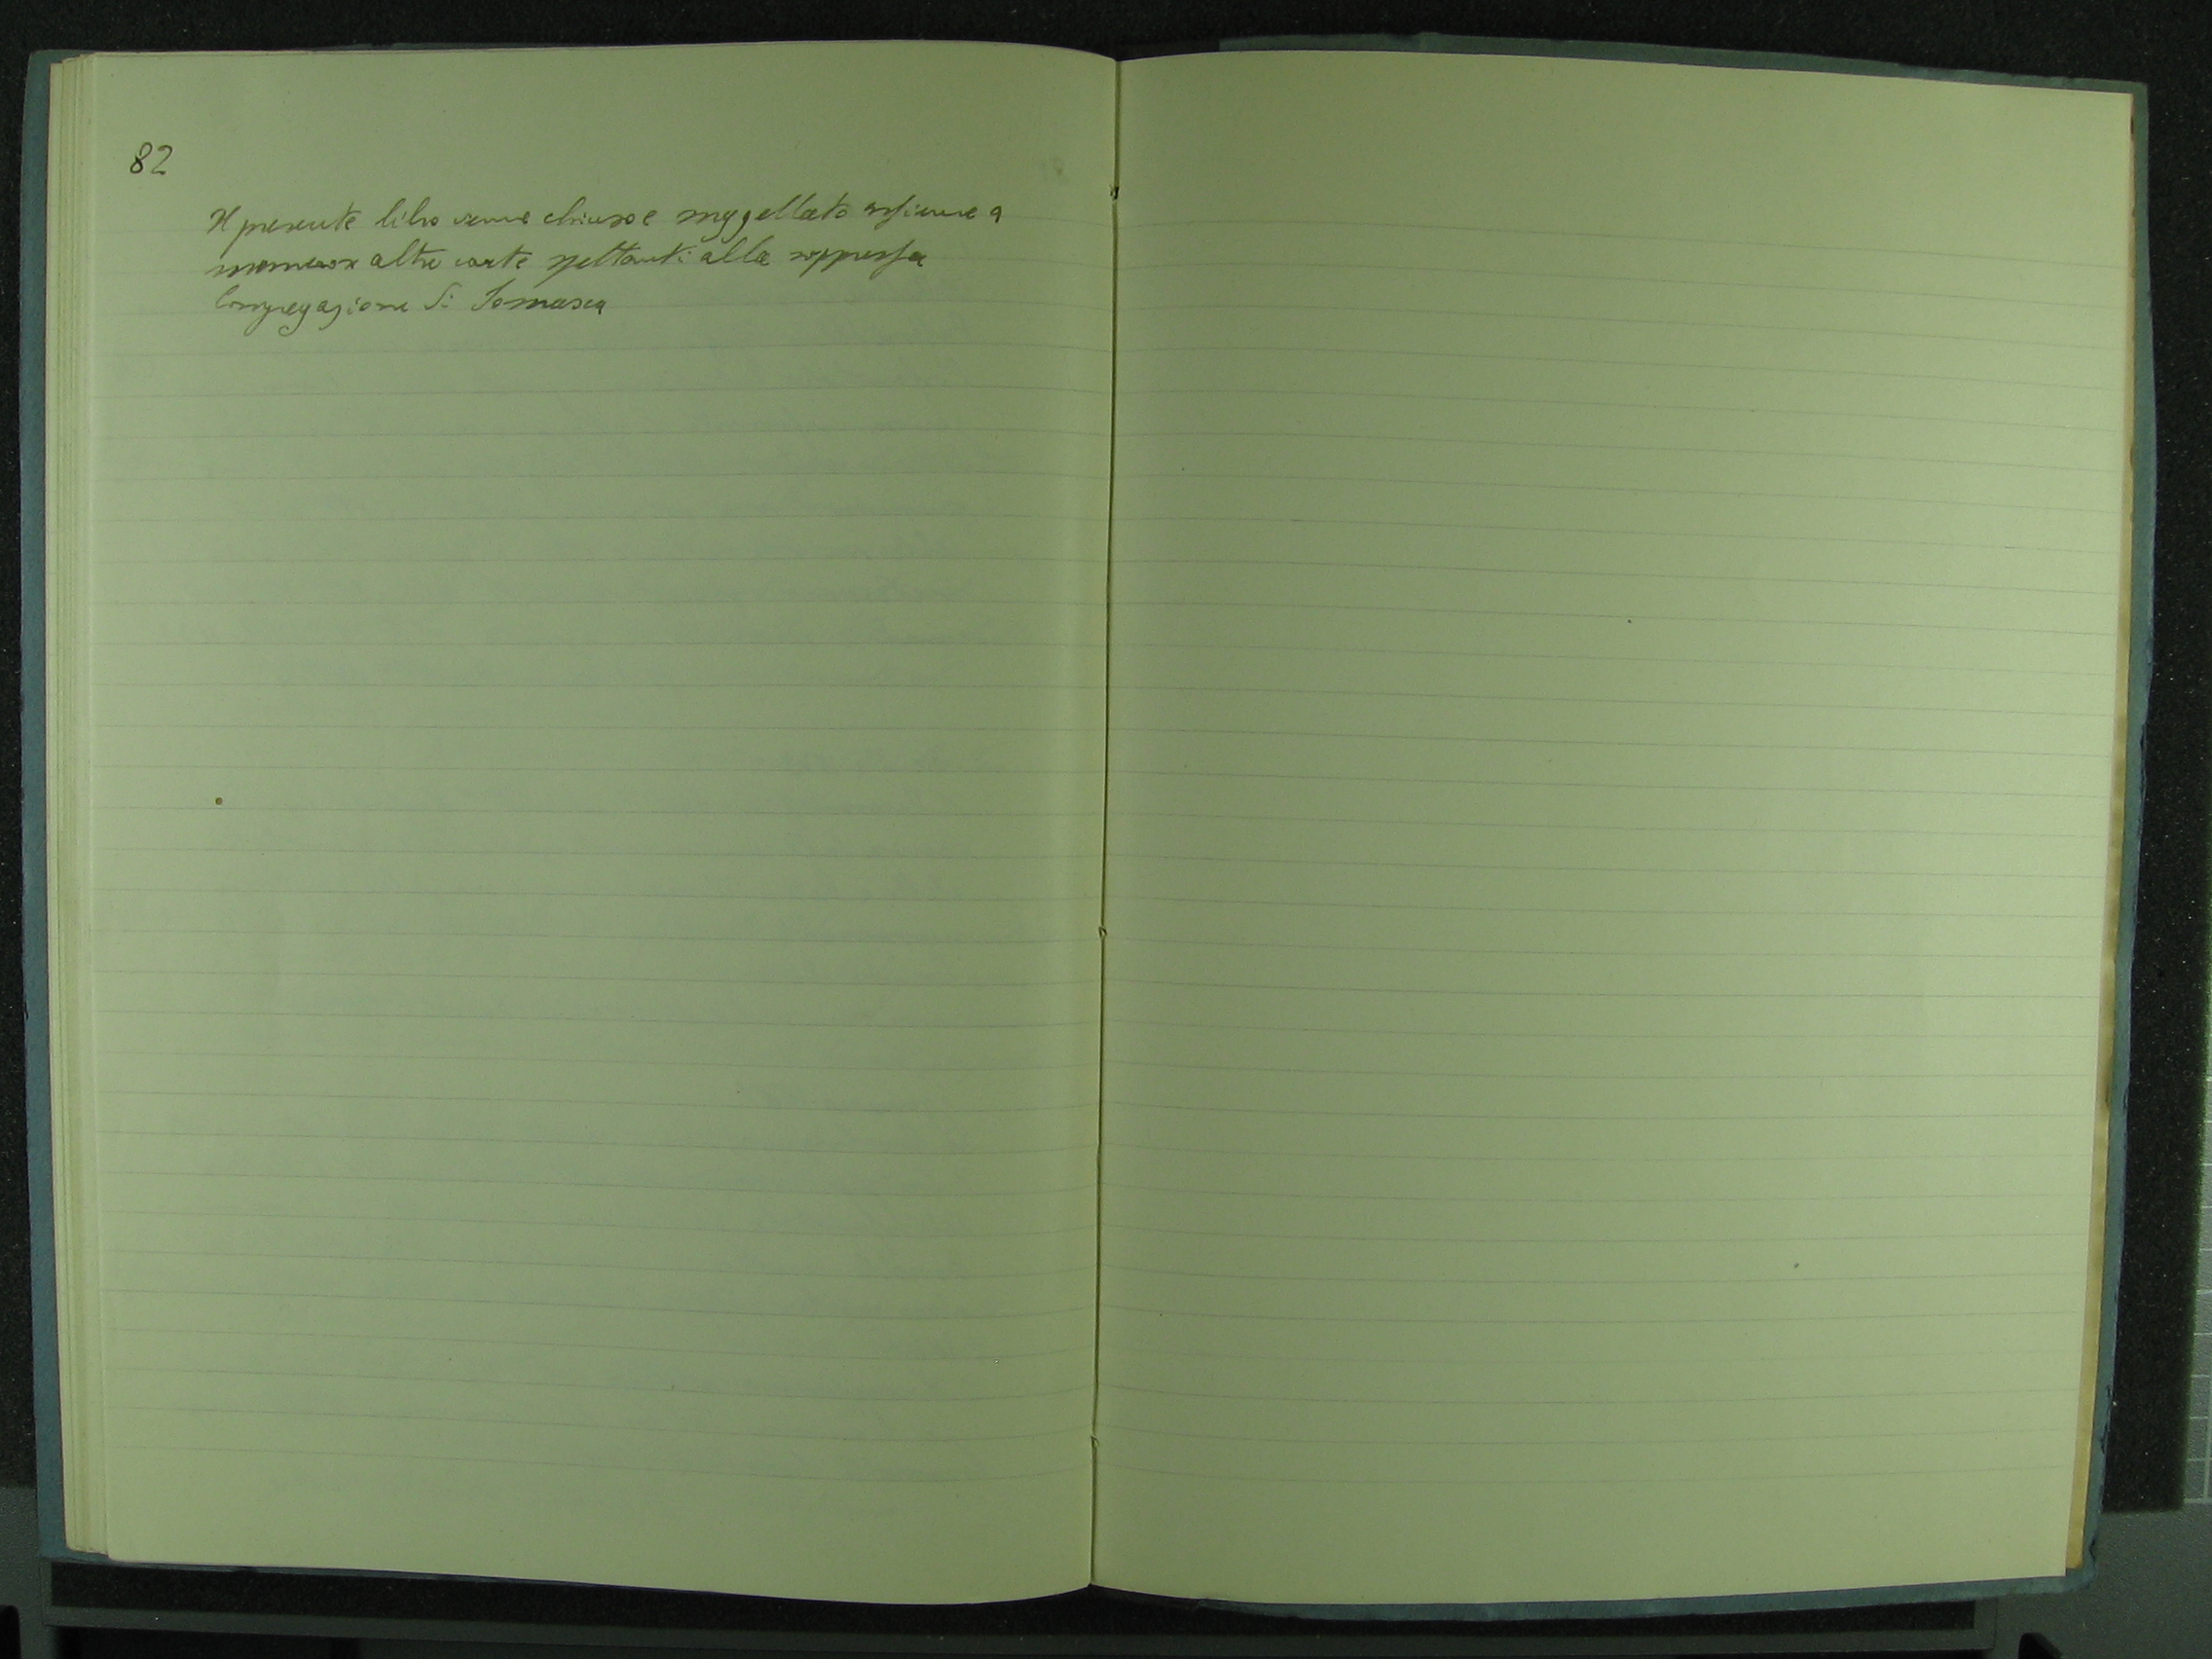 82
Il presente libro venne chiuso e suggellato assieme a
numerose altre carte spettanti alla soppressa
Congregazione di Somasca